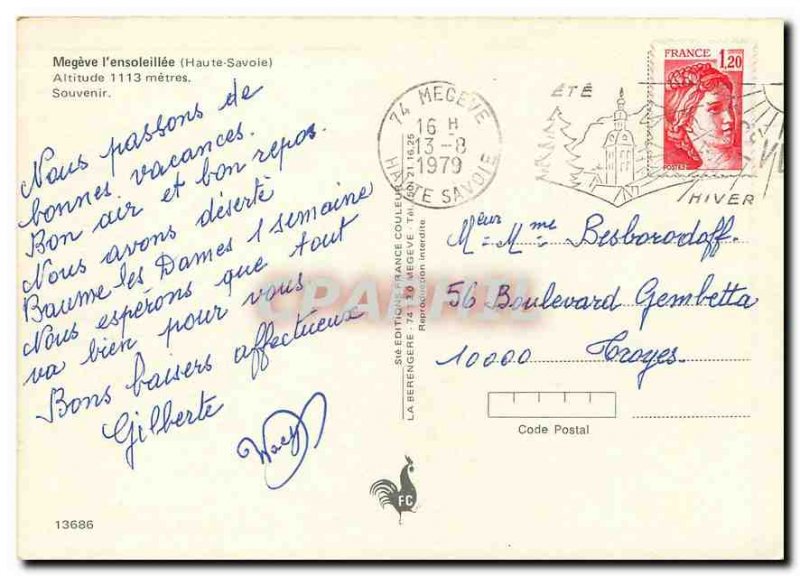 Megève l'ensoleillée (Haute-Savoie)
Altitude 1113 mètres.
Souvenir.
Nous passons de
bonnes vacances.
Bon air et bon repos.
Nous avons déserté
Baume les Dames 1 semaine
Nous espérons que tout
va bien pour vous
Bons baisers affectueux
Gilberte
13686
Sté EDITIONS FRANCE COULEUR
LA BERENGERE - 74120 MEGEVE - Tél. (50) 21.16.25
Reproduction interdite
FC
74 MEGEVE
16 H
13-8
1979
HAUTE SAVOIE
ÉTÉ
HIVER
FRANCE 1,20
POSTES
Meur Mme Besborodoff.
56 Boulevard Gembetta
10000 Troyes.
Code Postal
CPARAMA